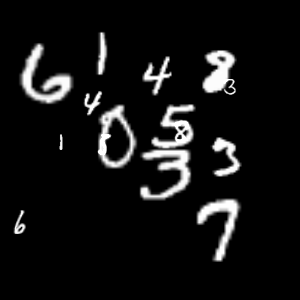 6 1 4 8
3
4
1 0 5 8 3
3
6 7